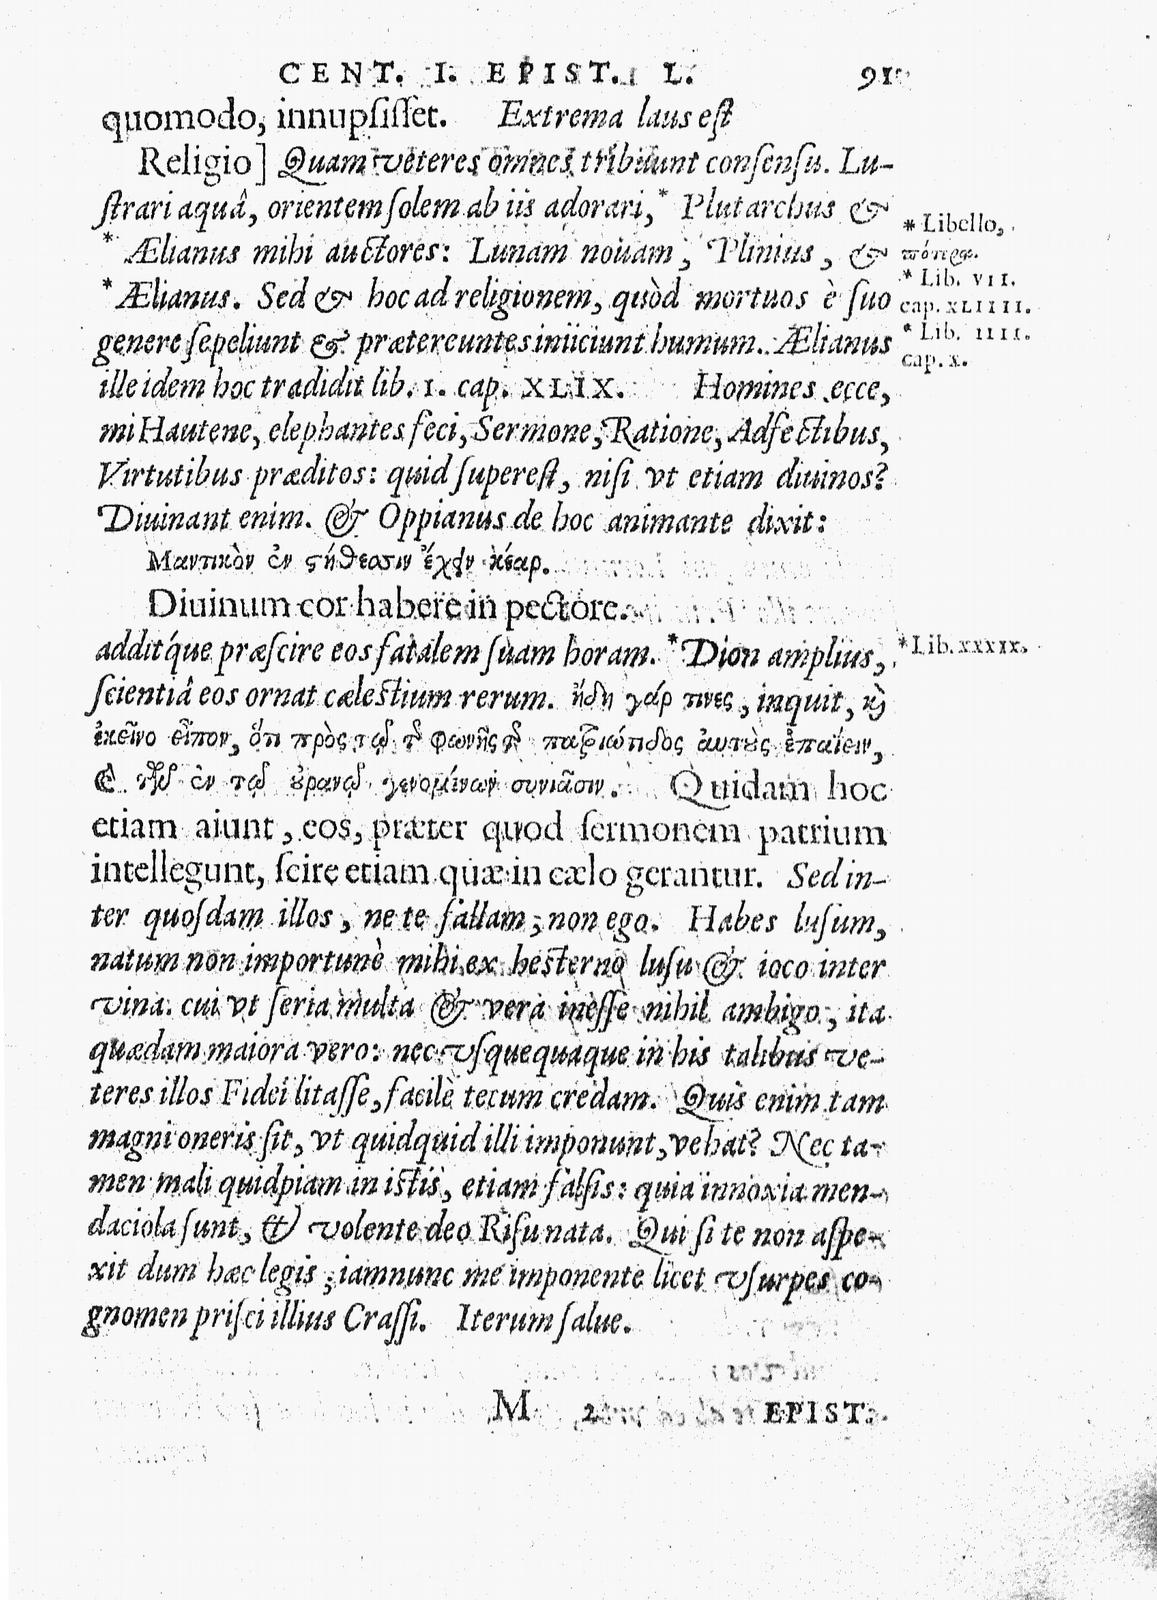 CENT. I. EPIST. L. 91
quomodo, innupſiſſet. Extrema laus eſt
Religio] Quam veteres omnes tribuunt conſenſu. Lu-
ſtrari aquâ, orientem ſolem ab iis adorari,* Plutarchus &
* Ælianus mihi auctores: Lunam nouam, Plinius, &
* Ælianus. Sed & hoc ad religionem, quòd mortuos è ſuo
genere ſepeliunt & prætereuntes iniiciunt humum. Ælianus
ille idem hoc tradidit lib. I. cap. XLIX. Homines ecce,
mi Hautene, elephantes feci, Sermone, Ratione, Adfectibus,
Virtutibus præditos: quid ſupereſt, niſi vt etiam diuinos?
Diuinant enim. & Oppianus de hoc animante dixit:
Μαντικὸν ἐν ςήθεσσιν ἔχειν κέαρ.
Diuinum cor habere in pectore.
additq́ue præſcire eos fatalem ſuam horam. * Dion amplius,
ſcientiâ eos ornat cæleſtium rerum. ἤδη γάρ τινες, inquit, καὶ
ἐκεῖνο εἶπον, ὅτι πρὸς τῷ τῆς φωνῆς τῆς πατριώτιδος αὐτοὺς ἐπαΐειν,
καὶ τῶν ἐν τῷ οὐρανῷ γενομένων συνιᾶσιν. Quidam hoc
etiam aiunt, eos, præter quod ſermonem patrium
intellegunt, ſcire etiam quæ in cælo gerantur. Sed in-
ter quoſdam illos, ne te fallam, non ego. Habes luſum,
natum non importunè mihi ex heſterno luſu & ioco inter
vina. cui vt ſeria multa & vera ineſſe nihil ambigo, ita
quædam maiora vero: nec vſquequaque in his talibus ve-
teres illos Fidei litaſſe, facilè tecum credam. Quis enim tam
magni oneris ſit, vt quidquid illi imponunt, vehat? Nec ta-
men mali quidpiam in iſtis, etiam falſis: quia innoxia men-
daciola ſunt, & volente deo Riſu nata. Qui ſi te non aſpe-
xit dum hæc legis, iamnunc me imponente licet vſurpes co-
gnomen priſci illius Craſſi. Iterum ſalue.
M 2 EPIST.
* Libello,
πότερα.
* Lib. VII.
cap. XLIIII.
* Lib. IIII.
cap. X.
* Lib. XXXIX.